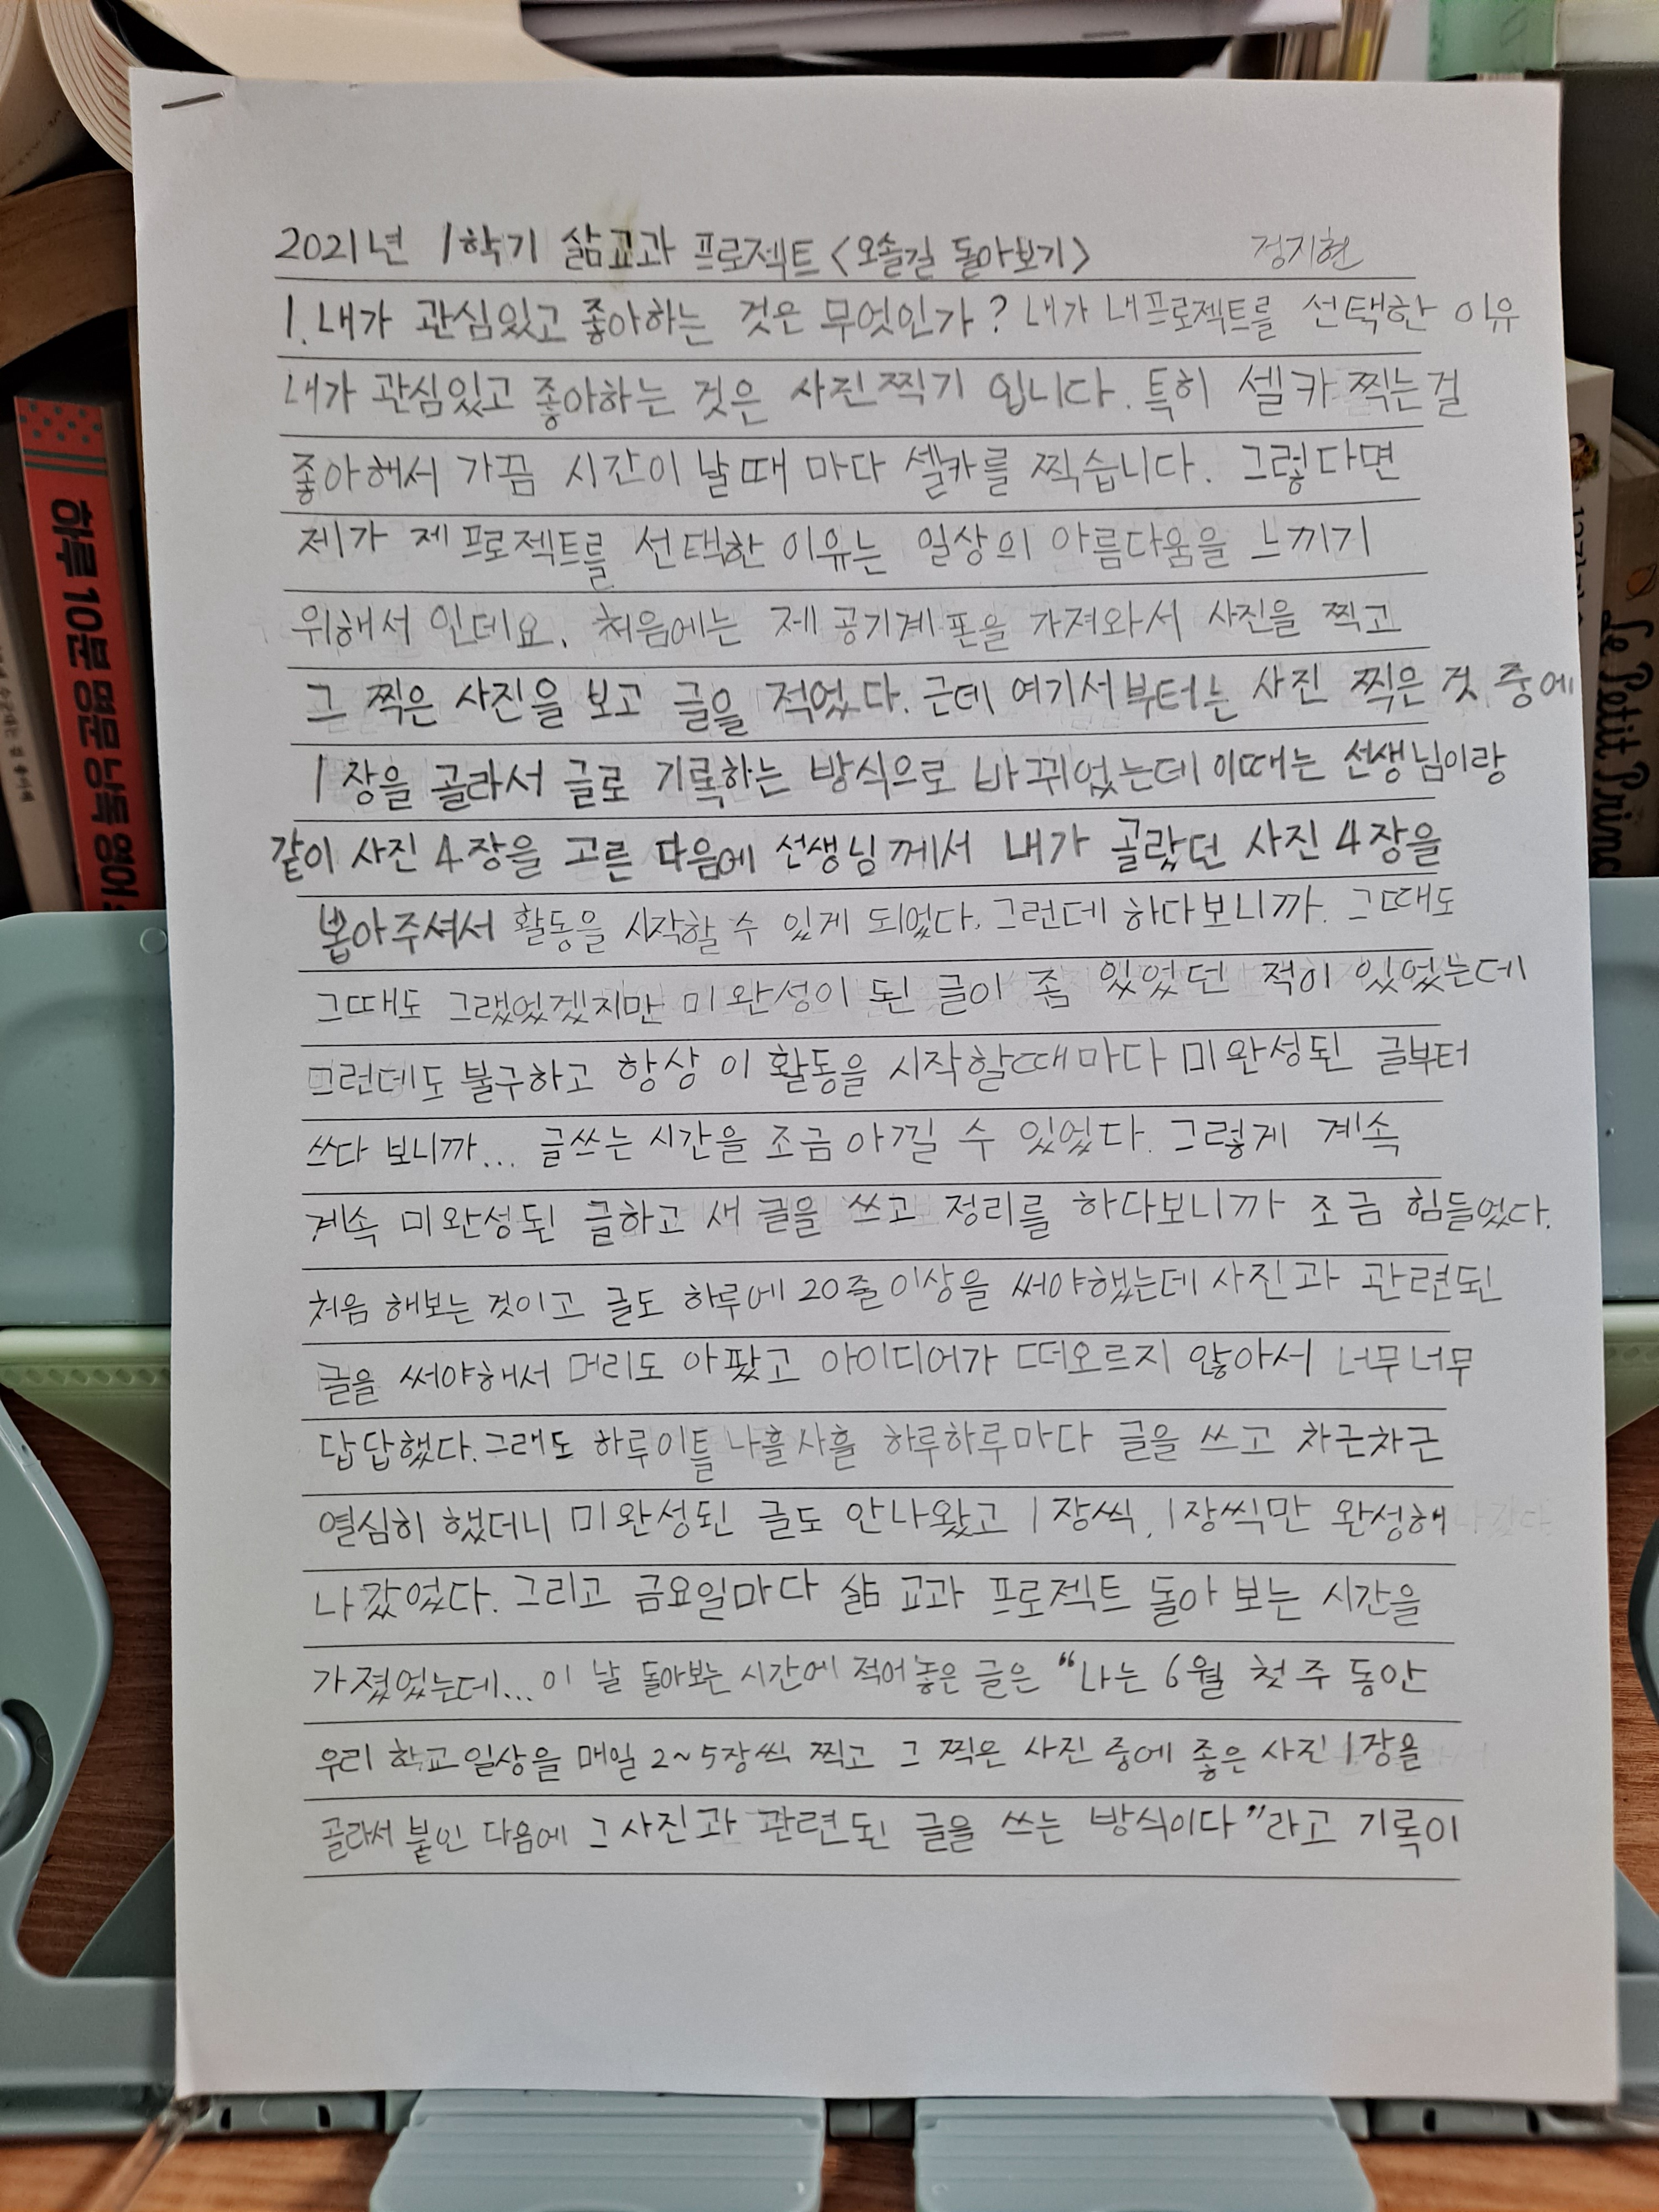 2021년 1학기 삶교과 프로젝트 <오솔길 돌아보기> 정지현
1. 내가 관심있고 좋아하는 것은 무엇인가? 내가 내프로젝트를 선택한 이유
내가 관심있고 좋아하는 것은 사진찍기 입니다. 특히 셀카 찍는걸
좋아해서 가끔 시간이 날때 마다 셀카를 찍습니다. 그렇다면
제가 제 프로젝트를 선택한 이유는 일상의 아름다움을 느끼기
위해서 인데요. 처음에는 제 공기계 폰을 가져와서 사진을 찍고
그 찍은 사진을 보고 글을 적었다. 근데 여기서부터는 사진 찍은 것 중에
1장을 골라서 글로 기록하는 방식으로 바뀌었는데 이때는 선생님이랑
같이 사진 4장을 고른 다음에 선생님께서 내가 골랐던 사진 4장을
뽑아주셔서 활동을 시작할 수 있게 되었다. 그런데 하다보니까. 그때도
그때도 그랬었겠지만 미완성이 된 글이 좀 있었던 적이 있었는데
그런데도 불구하고 항상 이 활동을 시작할때마다 미완성된 글부터
쓰다 보니까... 글쓰는 시간을 조금 아낄 수 있었다. 그렇게 계속
계속 미완성된 글하고 새 글을 쓰고 정리를 하다보니까 조금 힘들었다.
처음 해보는 것이고 글도 하루에 20줄 이상을 써야했는데 사진과 관련된
글을 써야해서 머리도 아팠고 아이디어가 떠오르지 않아서 너무너무
답답했다. 그래도 하루이틀 나흘사흘 하루하루마다 글을 쓰고 차근차근
열심히 했더니 미완성된 글도 안나왔고 1장씩, 1장씩만 완성해
나갔었다. 그리고 금요일마다 삶 교과 프로젝트 돌아 보는 시간을
가졌었는데... 이 날 돌아보는 시간에 적어놓은 글은 "나는 6월 첫 주 동안
우리 학교일상을 매일 2~5장씩 찍고 그 찍은 사진 중에 좋은 사진 1장을
골라서 붙인 다음에 그 사진과 관련된 글을 쓰는 방식이다"라고 기록이
하루 10분 명문 낭독 영어
Le Petit Prince